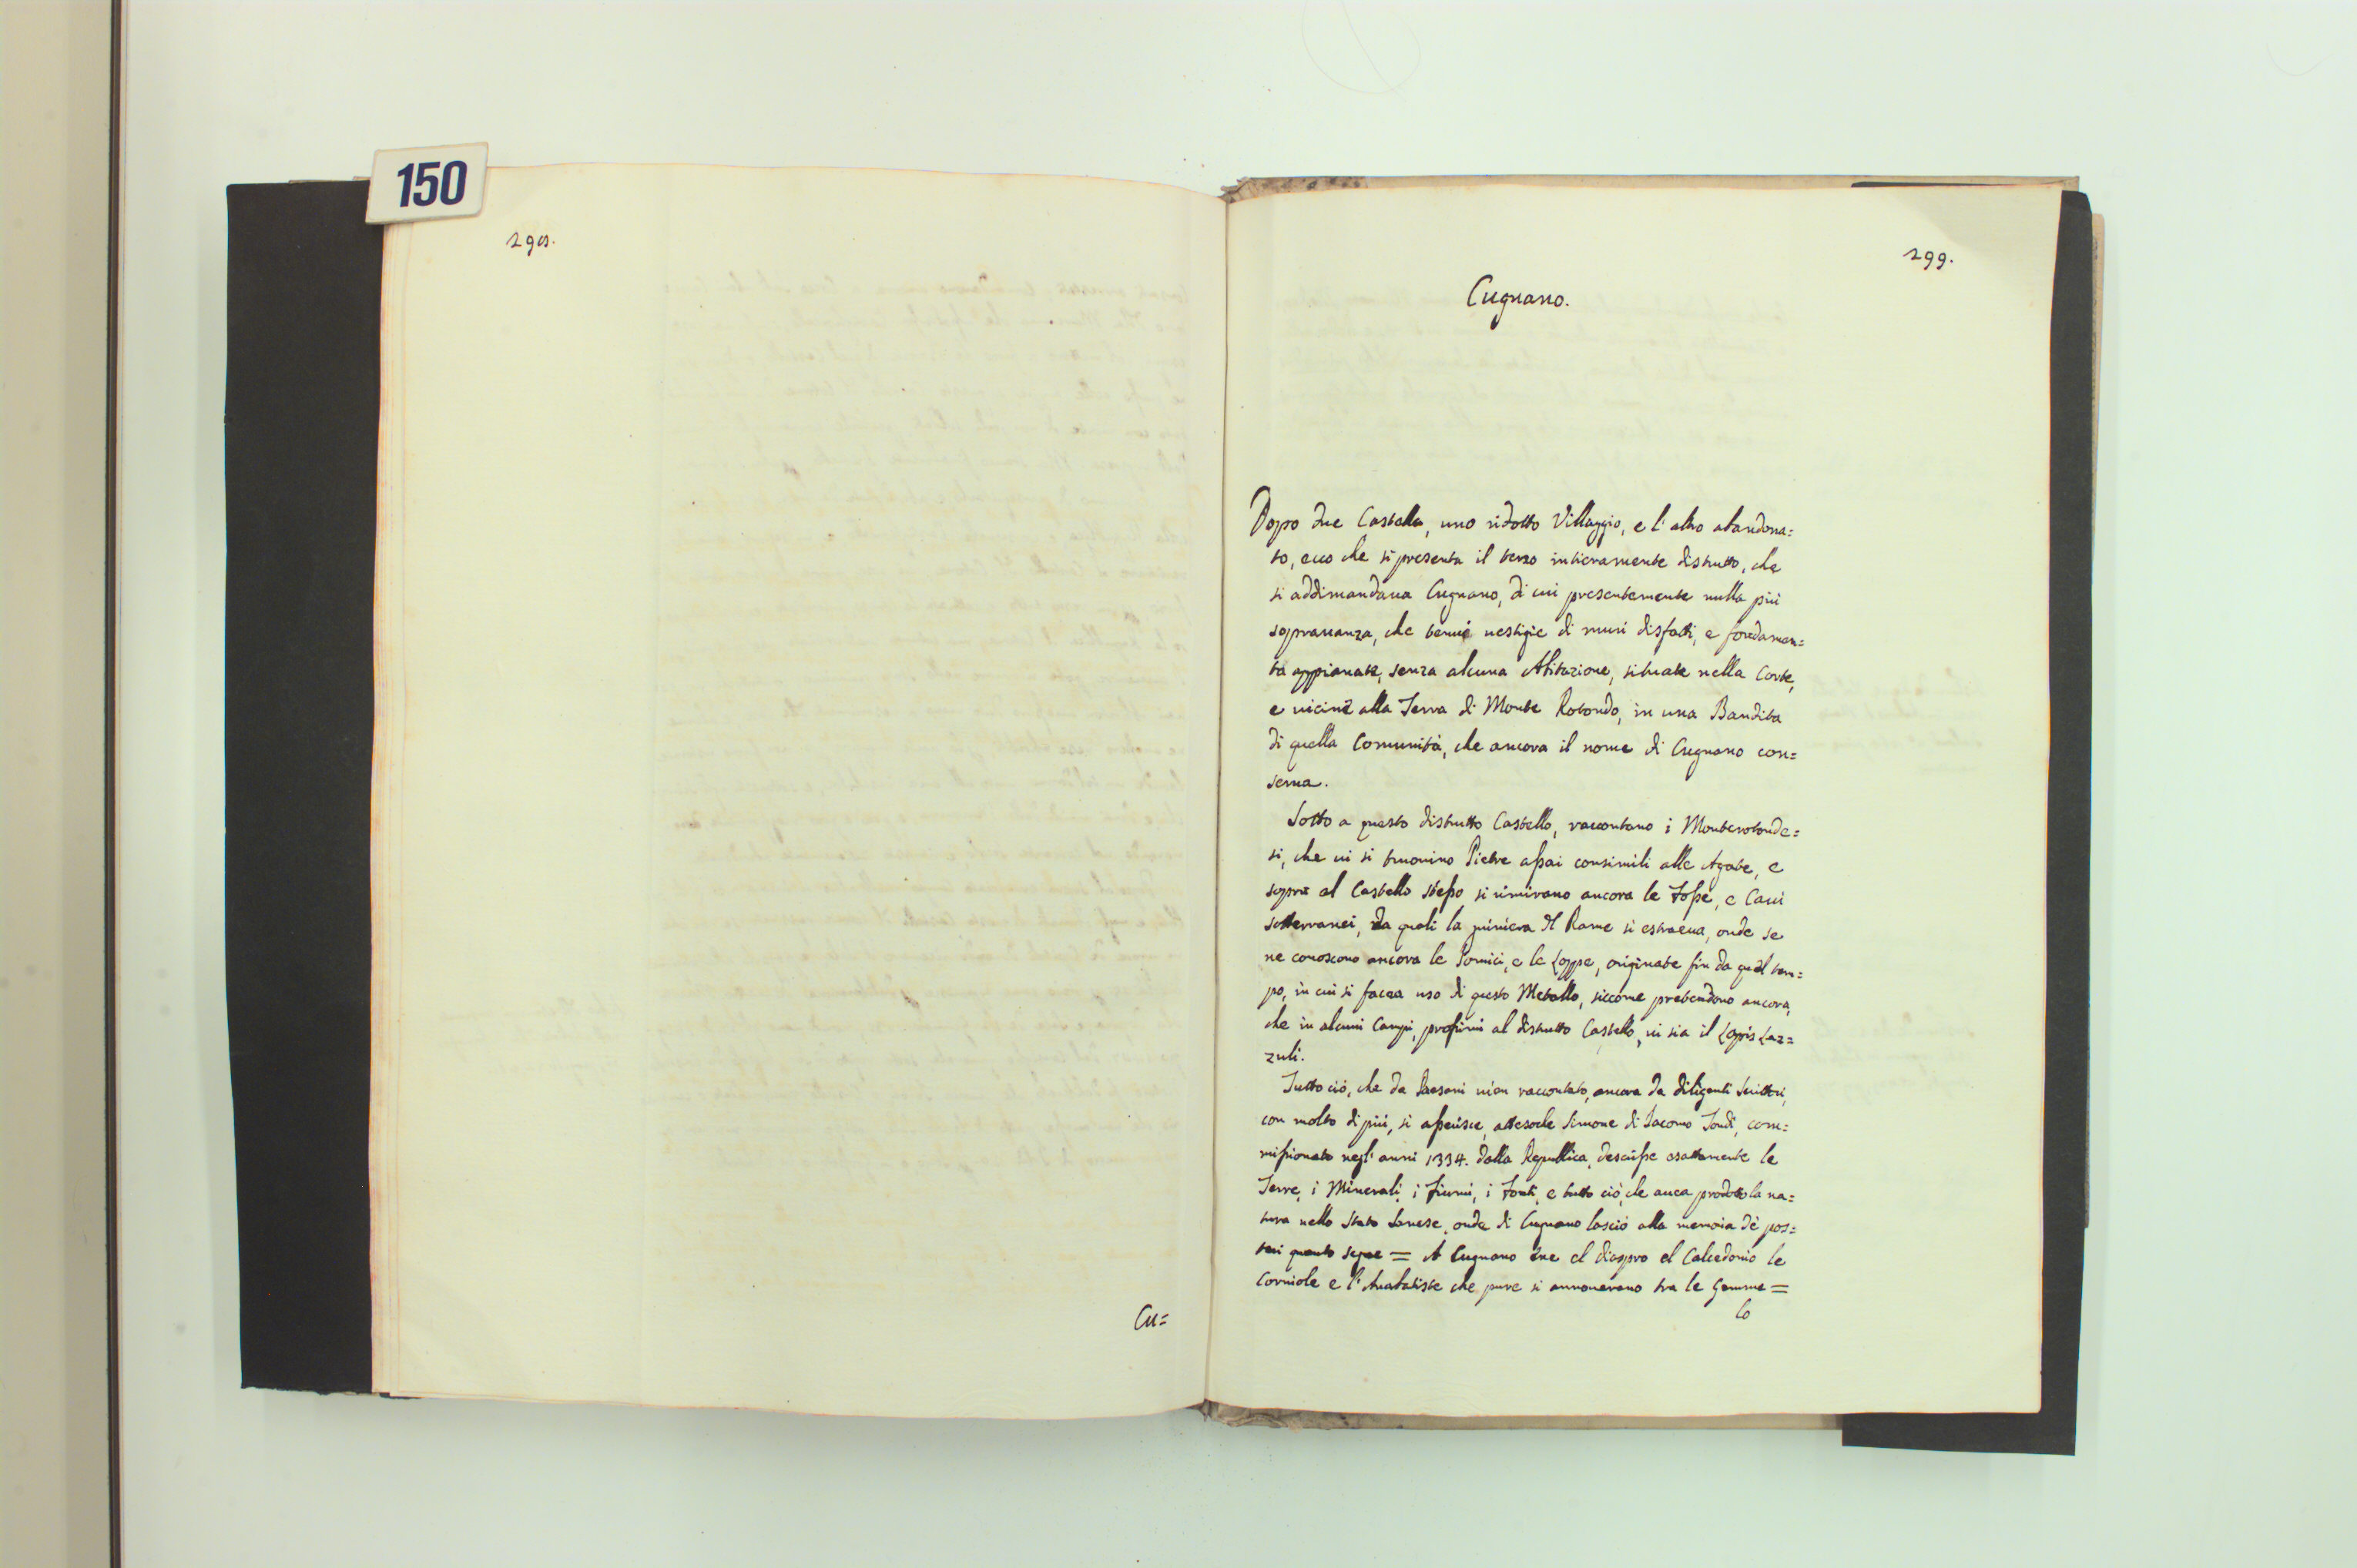 150
298.
Cu=
299.
Cugnano.
Dopo due Castella, uno ridotto Villaggio, e l'altro abandona=
to, ecco che si presenta il terzo intieramente distrutto, che
si addimandaua Cugnano, di cui presentemente nulla più
soprauanza, che tenui uestigie di muri disfatti, e fondamen=
ta appianate, senza alcuna Abitazione, situate nella Corte,
e uicine alla Terra di Monte Rotondo, in una Bandita
di quella Comunità, che ancora il nome di Cugnano con=
serua.
Sotto a questo distrutto Castello, raccontano i Monterotonde=
si, che ui si truouino Pietre assai consimili alle Agate, e
sopra al Castello stesso si rimirano ancora le Fosse, e Caui
sotterranei, da quali la miniera del Rame si estraeua, onde se
ne conoscono ancora le Pomici, e le Loppe, originate fin da quel tem=
po, in cui si facea uso di questo Metallo, siccome pretendono ancora,
che in alcuni Campi, prossimi al distrutto Castello, ui sia il Lapis Laz=
zuli.
Tutto ciò, che da Paesani uien raccontato, ancora da diligenti Scittori,
con molto di più, si asserisce, attesoche Simone di Iacomo Tondi, com=
missionato negl'anni 1334. dalla Republica, descrisse esattamente le
Terre, i Minerali, i fiumi, i fonti, e tutto ciò, che auea prodotto la na=
tura nello Stato Sanese, onde di Cugnano lasciò alla memoria dè pos=
teri quanto segue = A Cugnano ene el diaspro el Calcedonio le
Corniole e l'Amatatiste che pure si annouerano tra le Gemme =
Lo